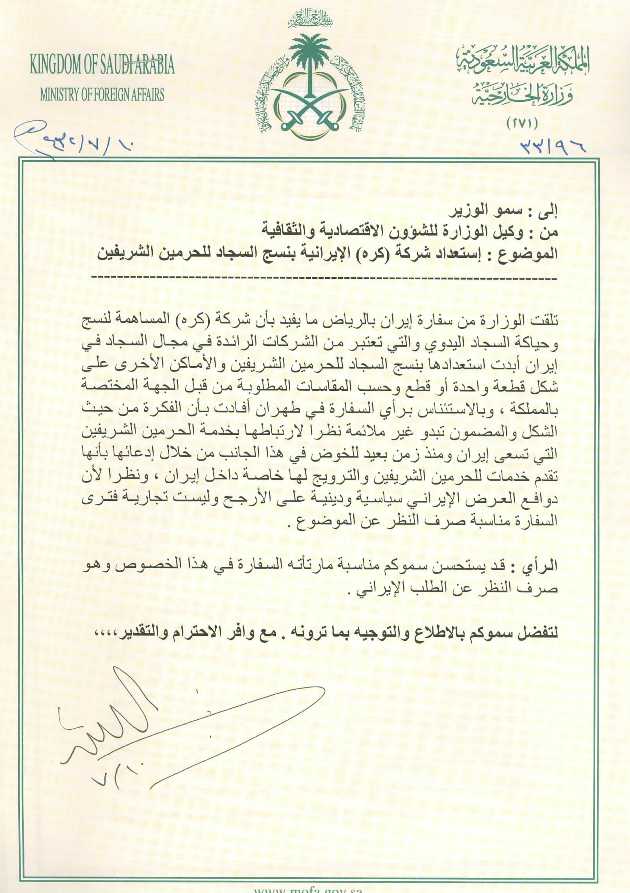 KINGDOM OF SAUDI ARABIA
MINISTRY OF FOREIGN AFFAIRS
المملكة العربية السعودية
وزارة الخارجية
(٢٧١)
٣٣/٩٦
٤٣٢/٧/١٠
إلى : سمو الوزير
من : وكيل الوزارة للشؤون الاقتصادية والثقافية
الموضوع : إستعداد شركة (كره) الإيرانية بنسج السجاد للحرمين الشريفين
تلقت الوزارة من سفارة إيران بالرياض ما يفيد بأن شركة (كره) المساهمة لنسج
وحياكة السجاد اليدوي والتي تعتبر من الشركات الرائدة في مجال السجاد في
إيران أبدت استعدادها بنسج السجاد للحرمين الشريفين والأماكن الأخرى على
شكل قطعة واحدة أو قطع وحسب المقاسات المطلوبة من قبل الجهة المختصة
بالمملكة ، وبالاستئناس برأي السفارة في طهران أفادت بأن الفكرة من حيث
الشكل والمضمون تبدو غير ملائمة نظرا لارتباطها بخدمة الحرمين الشريفين
التي تسعى إيران ومنذ زمن بعيد للخوض في هذا الجانب من خلال إدعائها بأنها
تقدم خدمات للحرمين الشريفين والترويج لها خاصة داخل إيران ، ونظرا لأن
دوافع العرض الإيراني سياسية ودينية على الأرجح وليست تجارية فترى
السفارة مناسبة صرف النظر عن الموضوع .
الرأي : قد يستحسن سموكم مناسبة مارتأته السفارة في هذا الخصوص وهو
صرف النظر عن الطلب الإيراني .
لتفضل سموكم بالاطلاع والتوجيه بما ترونه . مع وافر الاحترام والتقدير،،،،
٧/١٠
www.mofa.gov.sa